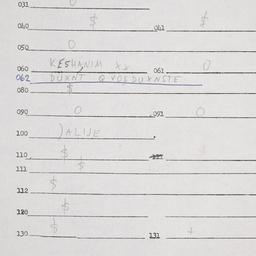 031
040 $ 041 $
050 0
060 KESHANIM xx 061 0
062 DUXNT Q VOEDUXNSTE
080 $
090 0 091 0
100 )ALIJE
110 $
111 $
112 $
120 $
130 $ 131